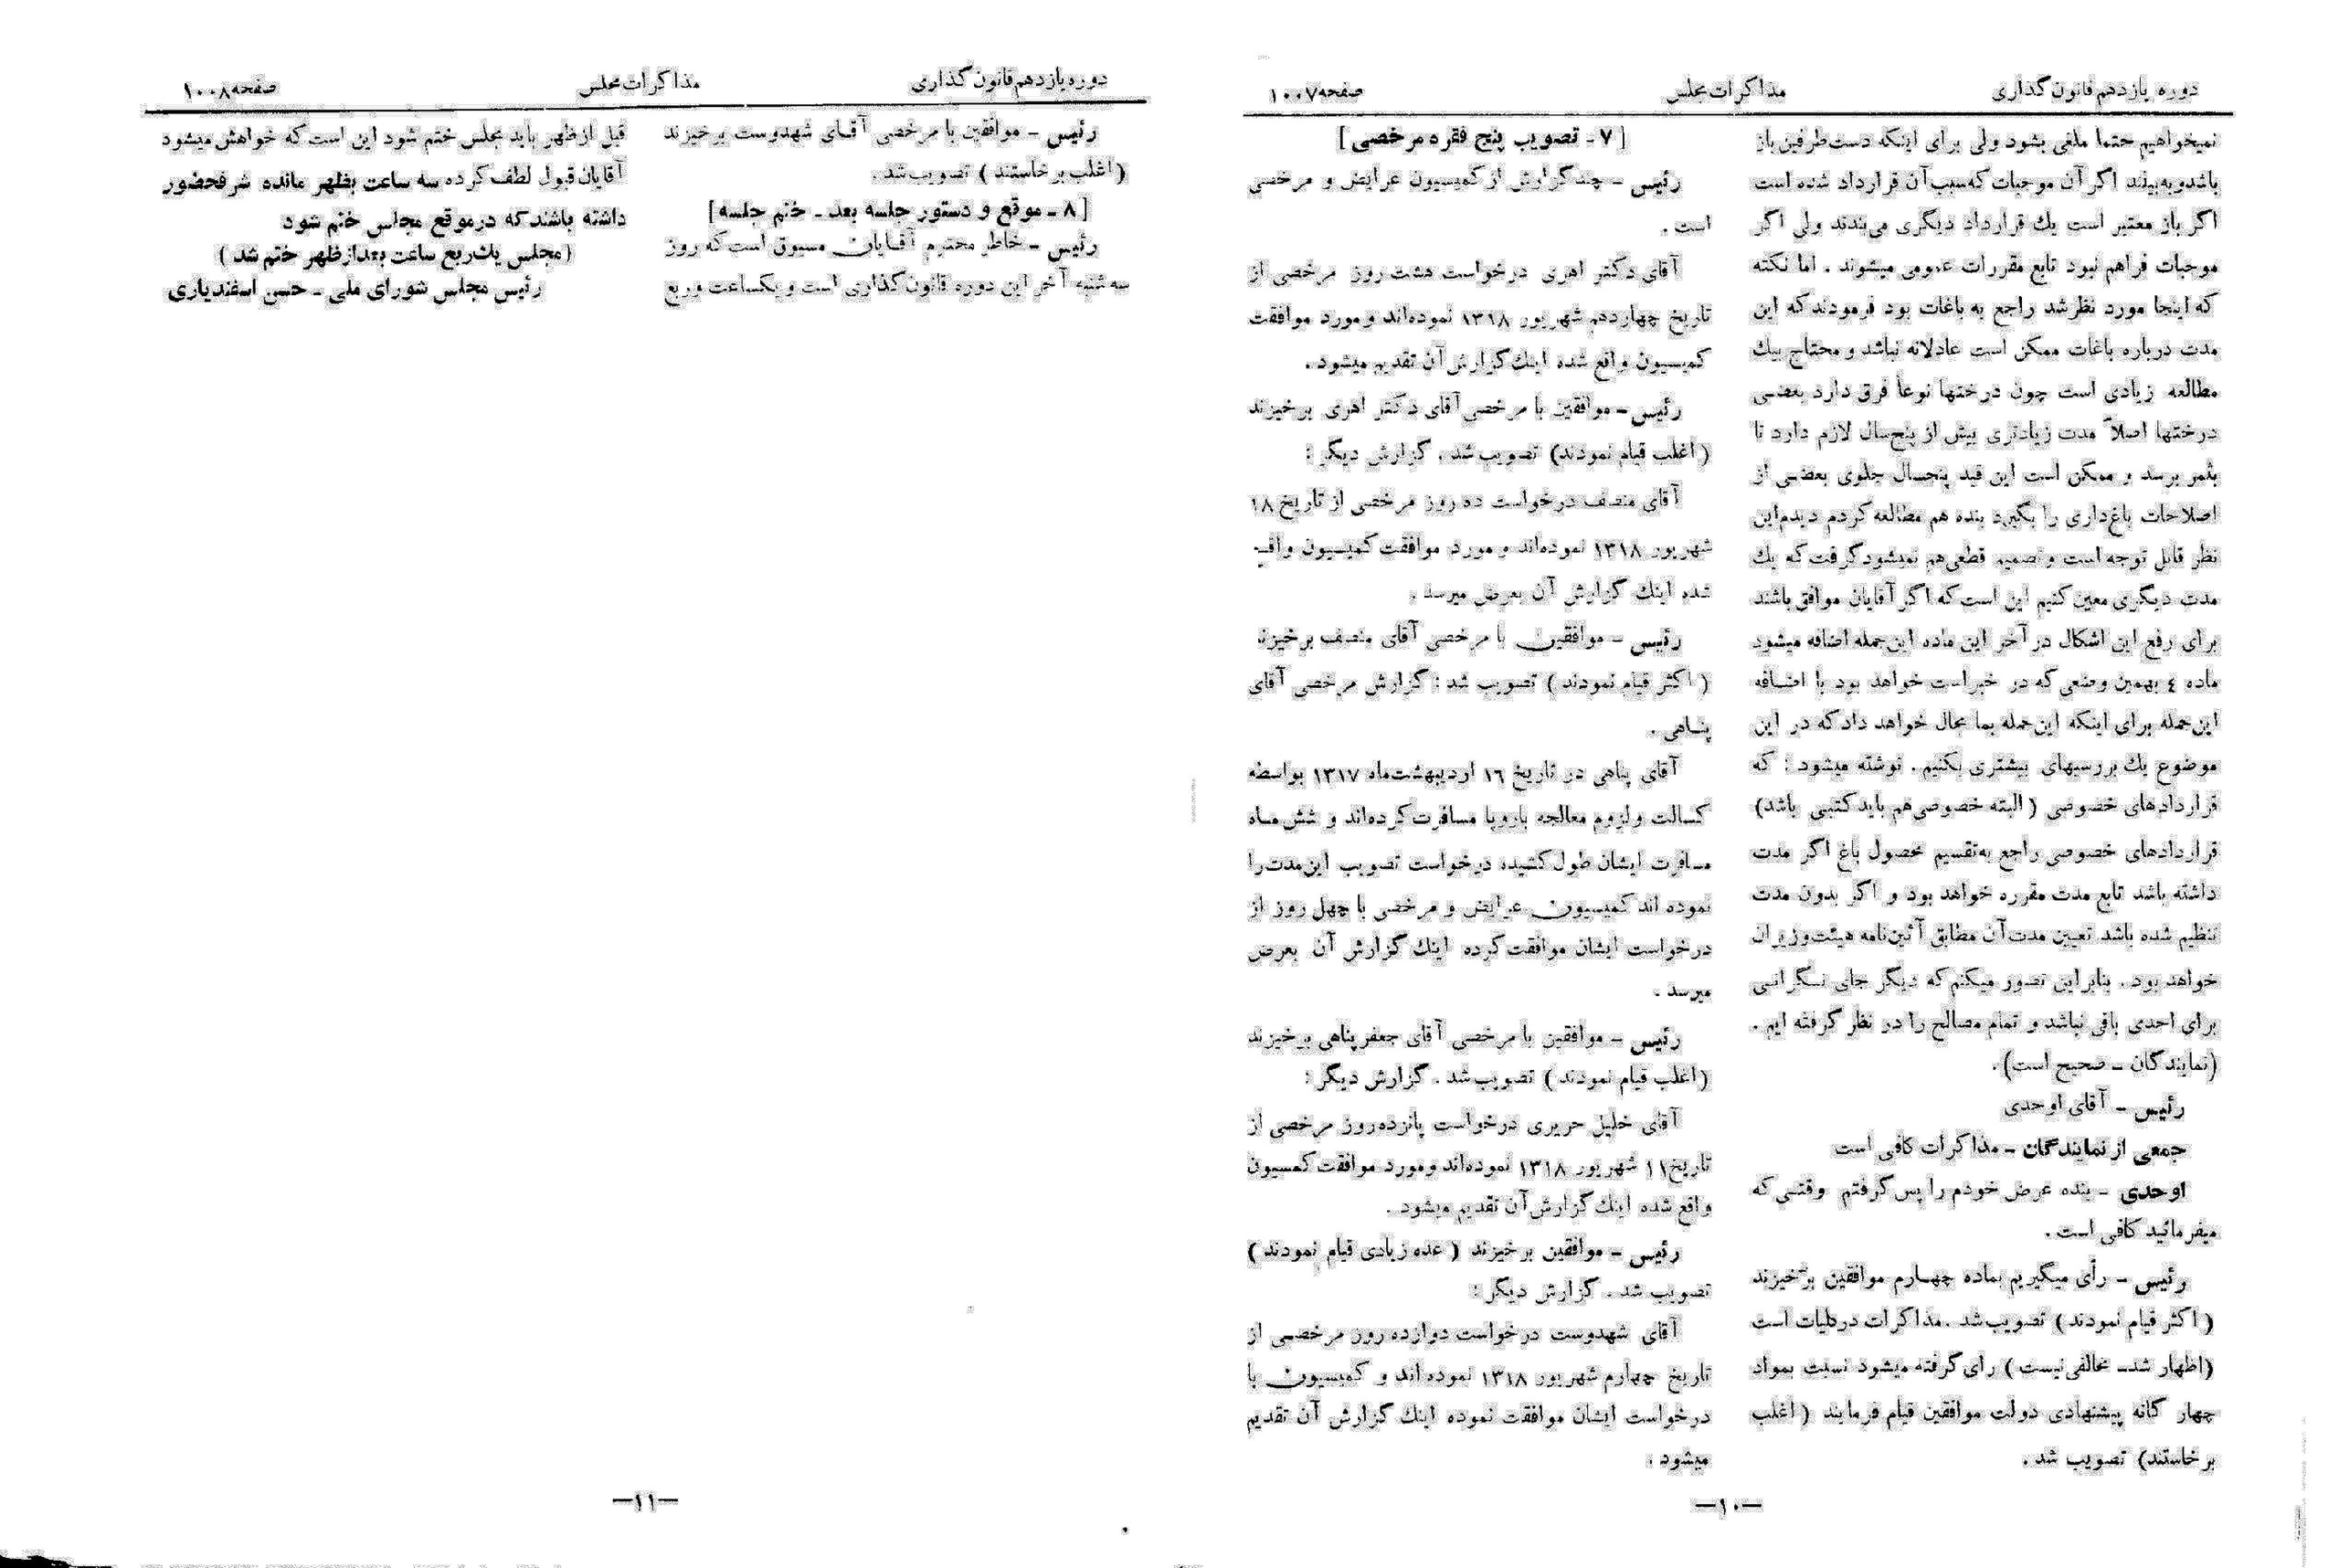 دوره یازدهم قانون گذاری
مذاکرات مجلس
صفحه ۱۰۰۷
نمیخواهیم حتما ملغی بشود ولی برای اینکه دست طرفین باز
باشد و به بینند اگر آن موجبات که سبب آن قرارداد شده است
اگر باز معتبر است یك قرارداد دیگری می‌بندند ولی اگر
موجبات فراهم نبود تابع مقررات عمومی میشوند . اما نکته
که اینجا مورد نظر شد راجع به باغات بود فرمودند که این
مدت درباره باغات ممکن است عادلانه نباشد و محتاج بیك
مطالعه زیادی است چون درختها نوعاً فرق دارد بعضی
درختها اصلاً مدت زیادتری بیش از پنج‌سال لازم دارد تا
بثمر برسد و ممکن است این قید پنجسال جلوی بعضی از
اصلاحات باغ‌داری را بگیرد بنده هم مطالعه کردم دیدم این
نظر قابل توجه است و تصمیم قطعی هم نمیشود گرفت که یك
مدت دیگری معین کنیم این است که اگر آقایان موافق باشند
برای رفع این اشکال در آخر این ماده این جمله اضافه میشود
ماده ٤ بهمین وضعی که در خبر است خواهد بود با اضافه
این جمله برای اینکه این جمله بما مجال خواهد داد که در این
موضوع یك بررسیهای بیشتری بکنیم . نوشته میشود : که
قراردادهای خصوصی ( البته خصوصی هم باید کتبی باشد)
قراردادهای خصوصی راجع به تقسیم محصول باغ اگر مدت
داشته باشد تابع مدت مقرره خواهد بود و اگر بدون مدت
تنظیم شده باشد تعیین مدت آن مطابق آئین‌نامه هیئت وزیران
خواهد بود . بنابراین تصور میکنم که دیگر جای نگرانی
برای احدی باقی نباشد و تمام مصالح را در نظر گرفته ایم .
(نمایندگان ـ صحیح است).
رئیس ـ آقای اوحدی
جمعی از نمایندگان ـ مذاکرات کافی است
اوحدی ـ بنده عرض خودم را پس گرفتم وقتی که
میفرمائید کافی است .
رئیس ـ رأی میگیریم بماده چهارم موافقین برخیزند
( اکثر قیام نمودند ) تصویب شد . مذاکرات در کلیات است
(اظهار شدـ مخالفی نیست ) رای گرفته میشود نسبت بمواد
چهار گانه پیشنهادی دولت موافقین قیام فرمایند ( اغلب
برخاستند) تصویب شد .
[ ۷ ـ تصویب پنج فقره مرخصی ]
رئیس ـ چند گزارش از کمیسیون عرایض و مرخصی
است .
آقای دکتر اهری درخواست هشت روز مرخصی از
تاریخ چهاردهم شهریور ۱۳۱۸ نموده‌اند و مورد موافقت
کمیسیون واقع شده اینك گزارش آن تقدیم میشود .
رئیس ـ موافقین با مرخصی آقای دکتر اهری برخیزند
( اغلب قیام نمودند) تصویب شد . گزارش دیگر :
آقای منصف درخواست ده روز مرخصی از تاریخ ۱۸
شهریور ۱۳۱۸ نموده‌اند و مورد موافقت کمیسیون واقع
شده اینك گزارش آن بعرض میرسد .
رئیس ـ موافقین با مرخصی آقای منصف برخیزند
( اکثر قیام نمودند ) تصویب شد : گزارش مرخصی آقای
پناهی .
آقای پناهی در تاریخ ۱٦ اردیبهشت‌ماه ۱۳۱۷ بواسطه
کسالت و لزوم معالجه باروپا مسافرت کرده‌اند و شش ماه
مسافرت ایشان طول کشیده درخواست تصویب این مدت را
نموده اند کمیسیون عرایض و مرخصی با چهل روز از
درخواست ایشان موافقت کرده اینك گزارش آن بعرض
میرسد .
رئیس ـ موافقین با مرخصی آقای جعفر پناهی برخیزند
( اغلب قیام نمودند ) تصویب شد . گزارش دیگر :
آقای خلیل حریری درخواست پانزده روز مرخصی از
تاریخ ۱۱ شهریور ۱۳۱۸ نموده‌اند و مورد موافقت کمسیون
واقع شده اینك گزارش آن تقدیم میشود .
رئیس ـ موافقین برخیزند ( عده زیادی قیام نمودند )
تصویب شد . گزارش دیگر :
آقای شهدوست درخواست دوازده روز مرخصی از
تاریخ چهارم شهریور ۱۳۱۸ نموده اند و کمیسیون با
درخواست ایشان موافقت نموده اینك گزارش آن تقدیم
میشود .
—۱۰—
دوره یازدهم قانون گذاری
مذاکرات مجلس
صفحه ۱۰۰۸
رئیس ـ موافقین با مرخصی آقای شهدوست برخیزند
( اغلب برخاستند ) تصویب شد .
[ ۸ ـ موقع و دستور جلسه بعد ـ ختم جلسه ]
رئیس ـ خاطر محترم آقایان مسبوق است که روز
سه شنبه آخر این دوره قانون گذاری است و یکساعت و ربع
قبل از ظهر باید مجلس ختم شود این است که خواهش میشود
آقایان قبول لطف کرده سه ساعت بظهر مانده شرفحضور
داشته باشند که در موقع مجلس ختم شود
(مجلس یك ربع ساعت بعد از ظهر ختم شد )
رئیس مجلس شورای ملی ـ حسن اسفندیاری
—۱۱—